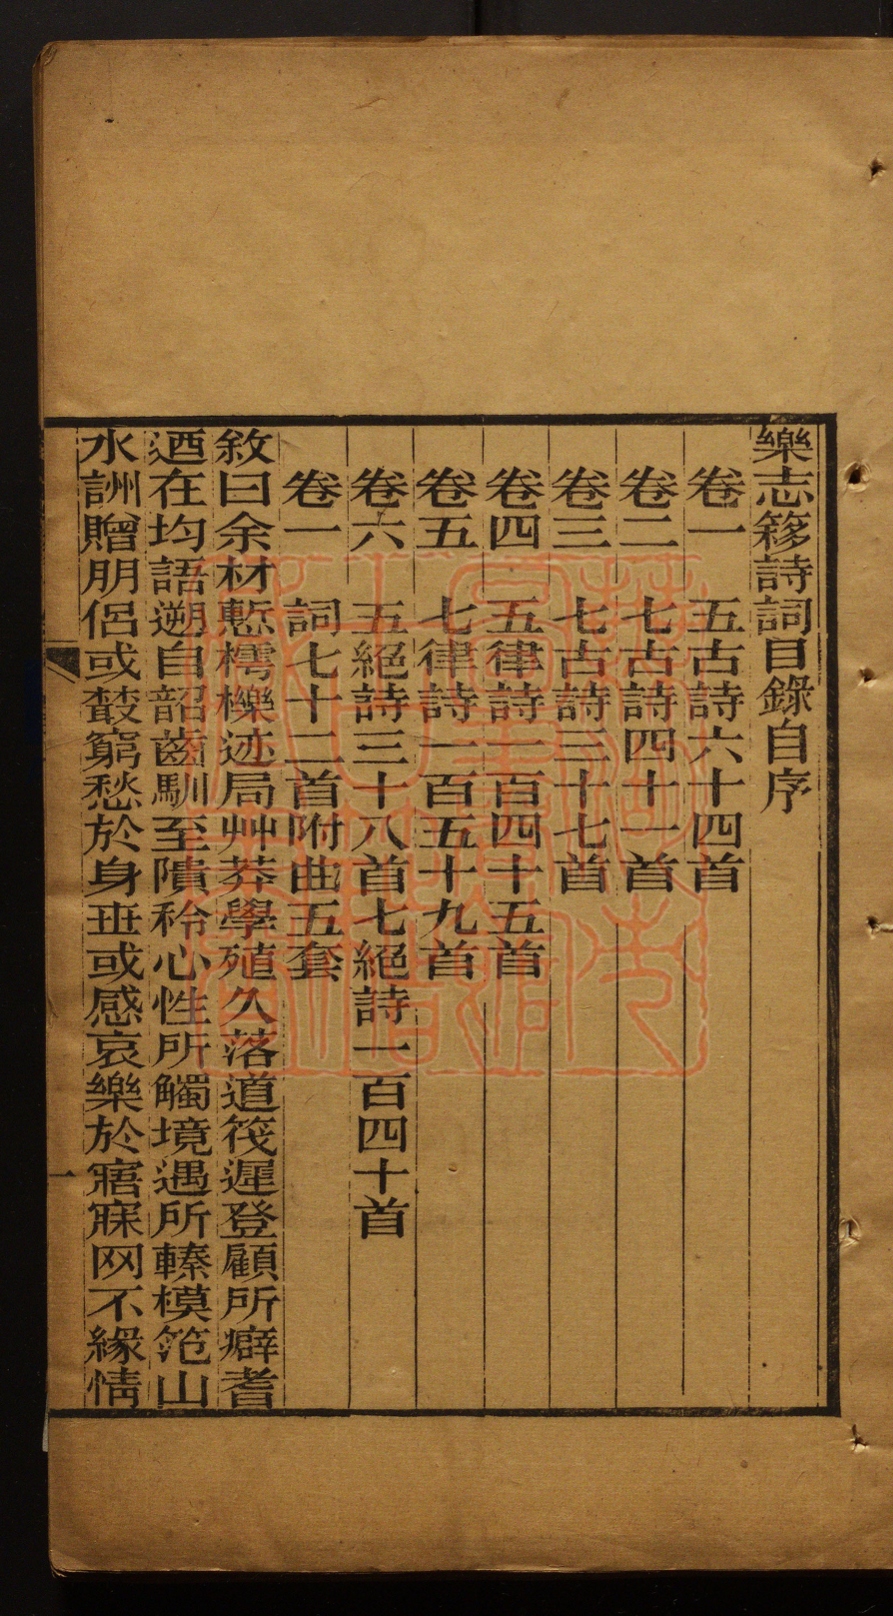 樂志簃詩詞目錄自序
卷一 五古詩六十四首
卷二 七古詩四十一首
卷三 七古詩三十七首
卷四 五律詩一百四十五首
卷五 七律詩一百五十九首
卷六 五絕詩三十八首七絕詩一百四十首
卷一 詞七十二首附曲五套
敘曰余材慙樗櫟迹局艸莽學殖久落道筏遲登顧所癖耆
迺在均語遡自韶齒馴至隤秢心性所觸境遇所轃模笵山
水詶贈朋侶或蝅窮愁於身丗或感哀樂於寤寐网不緣情
一